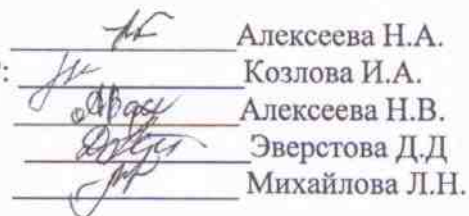 Алексеева Н.А.
: Козлова И.А.
Алексеева Н.В.
Эверстова Д.Д
Михайлова Л.Н.